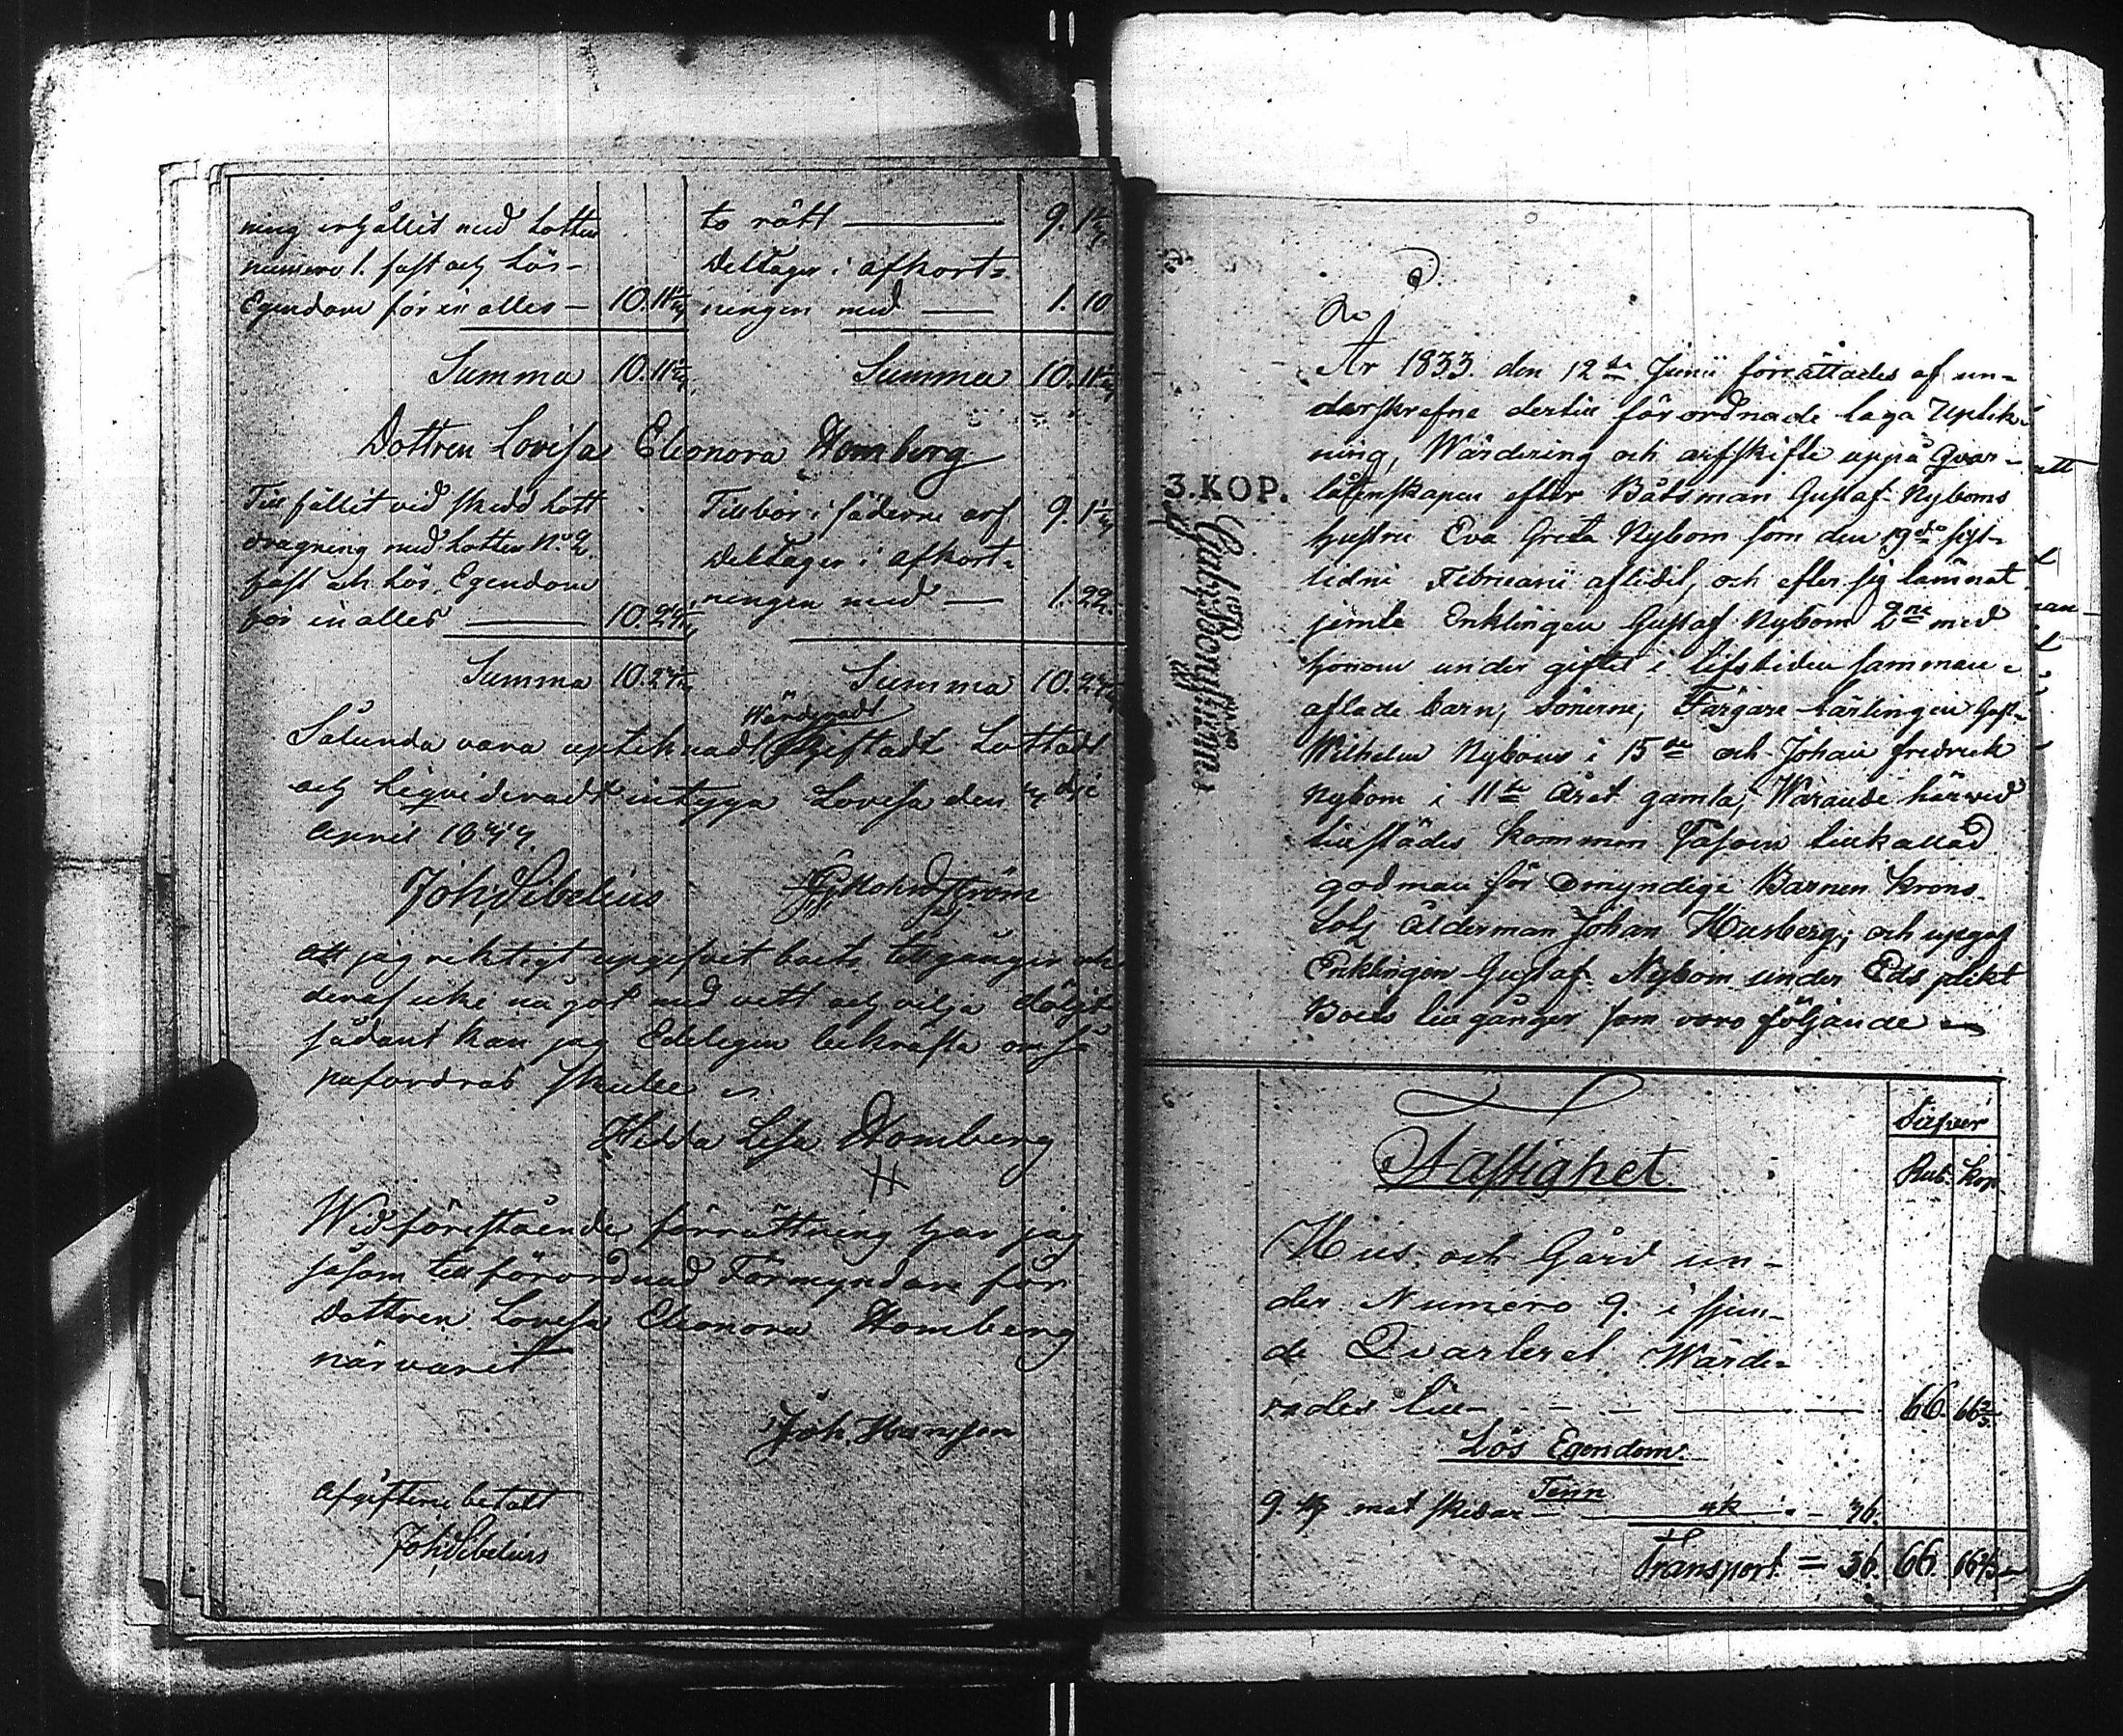 ning erhållit med Lotten
numero 1. fast och Lös-
Egendom för in alles — 10.11 1/4
Summa 10.11 1/4
to rätt — 9. 1 1/4
Deltager i afkort-
ningen med — 1. 10
Summa 10.11 1/4
Dottren Lovisa Eleonora Homberg
Till fallit vid skedd Lott
dragning med Lotten No 2.
fast och Lös Egendom
för in alles — 10.24 1/4
Summa 10.24 1/4
Tillbör i fäderne arf 9. 1 1/4
Deltager i afkort-
ningen med — 1.22.
Summa 10.24 1/4
Wärderadt
Sålunda vara uptecknadt Skiftadt Lottadt
och Liqvideradt intyga Lovisa den
April
Joh. Sibelius
Att jag riktigt uppgifvit boets tillgångar och
deraf icke något med vett och vilja döljt
sådant kan jag Edeligen bekräfta om så
påfordras skulle
Lisa Homberg
Wid förestående förrättning har jag
såsom till förordnad Förmyndare för
Dottren Lovisa Eleonora Homberg
närvarit
Joh.
Afgifterne betalt
Joh. Sibelius
År 1833. den 12te Junii förrättades af un-
derskrefne dertill förordnade laga Uptek-
ning, Wärdering och arfskifte uppå Qvar-
låtenskapen efter Båtsman Gustaf Nyboms
hustru Eva Greta Nybom som den 19de sist-
lidne Februarii aflidit, och efter sig lämnat
jemte Enklingen Gustaf Nybom 2ne med
honom under giftes i lifstiden samman-
aflade barn; Sönerne, Färgare lärlingen Gust-
Wilhelm Nybom i 15de och Johan Fredrick
Nybom i 11te Året gamla; Warande härvid
tillstädes kommen såsom tillkallad
godman för Omyndige Barnen Krono
Ålderman Johan Husberg; och uppgaf
Enklingen Gustaf Nybom under Eds plikt
Boets tillgånger som voro följande
3. KOP.
Silfver
Rub. Kop
Fastighet
Hus och Gård un-
der Numero 9. i sjun-
de Qvarteret Wärde-
rades till — 66. 66 2/3
Lös Egendom.
Tenn
9. st mat skedar — 4k — 36.
Transport = 36. 66. 66 2/3